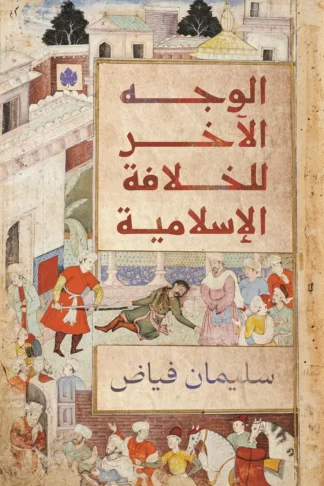 الوجه
الآخر
للخلافة
الإسلامية
سليمان فياض